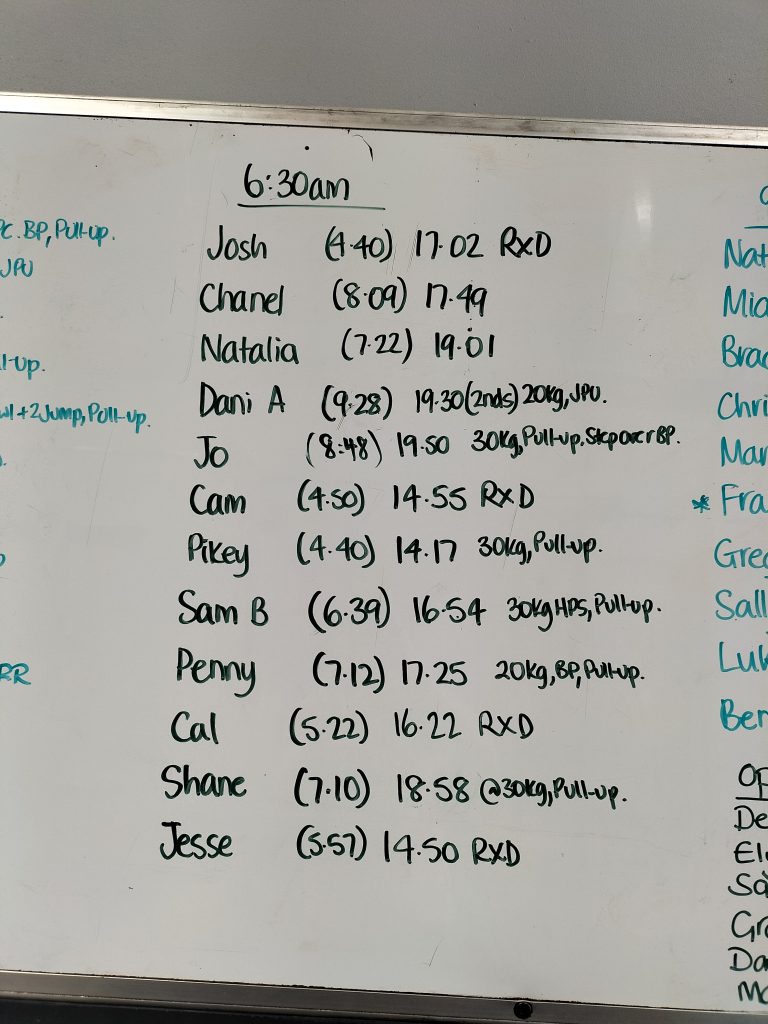 6:30am
Josh (4.40) 17.02 RXD
Chanel (8.09) 17.49
Natalia (7.22) 19.01
Dani A (9.28) 19.30 (2nds) 20kg, JPU.
Jo (8:48) 19.50 30kg, Pull-up, Step over BP.
Cam (4.50) 14.55 RXD
Pikey (4.40) 14.17 30kg, Pull-up.
Sam B (6.39) 16.54 30kg HPS, Pull-up.
Penny (7.12) 17.25 20kg, BP, Pull-up.
Cal (5.22) 16.22 RXD
Shane (7.10) 18.58 @30kg, Pull-up.
Jesse (5.57) 14.50 RXD
BP, Pull-up.
JPU
+2 Jump, Pull-up.
Nat
Mia
Brad
Chri
Mar
* Fra
Greg
Sall
Luk
Ben
Op
De
El
Sa
Gr
Da